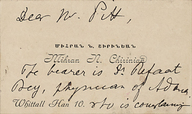 Dear Mr. Pitt,
ՄԻՀՐԱՆ Ն. ՇԻՐԻՆԵԱՆ
Mihran N. Chirinian
The bearer is Dr Refaat
Bey, physician of Adana
Whittall Han 10. who is complaining